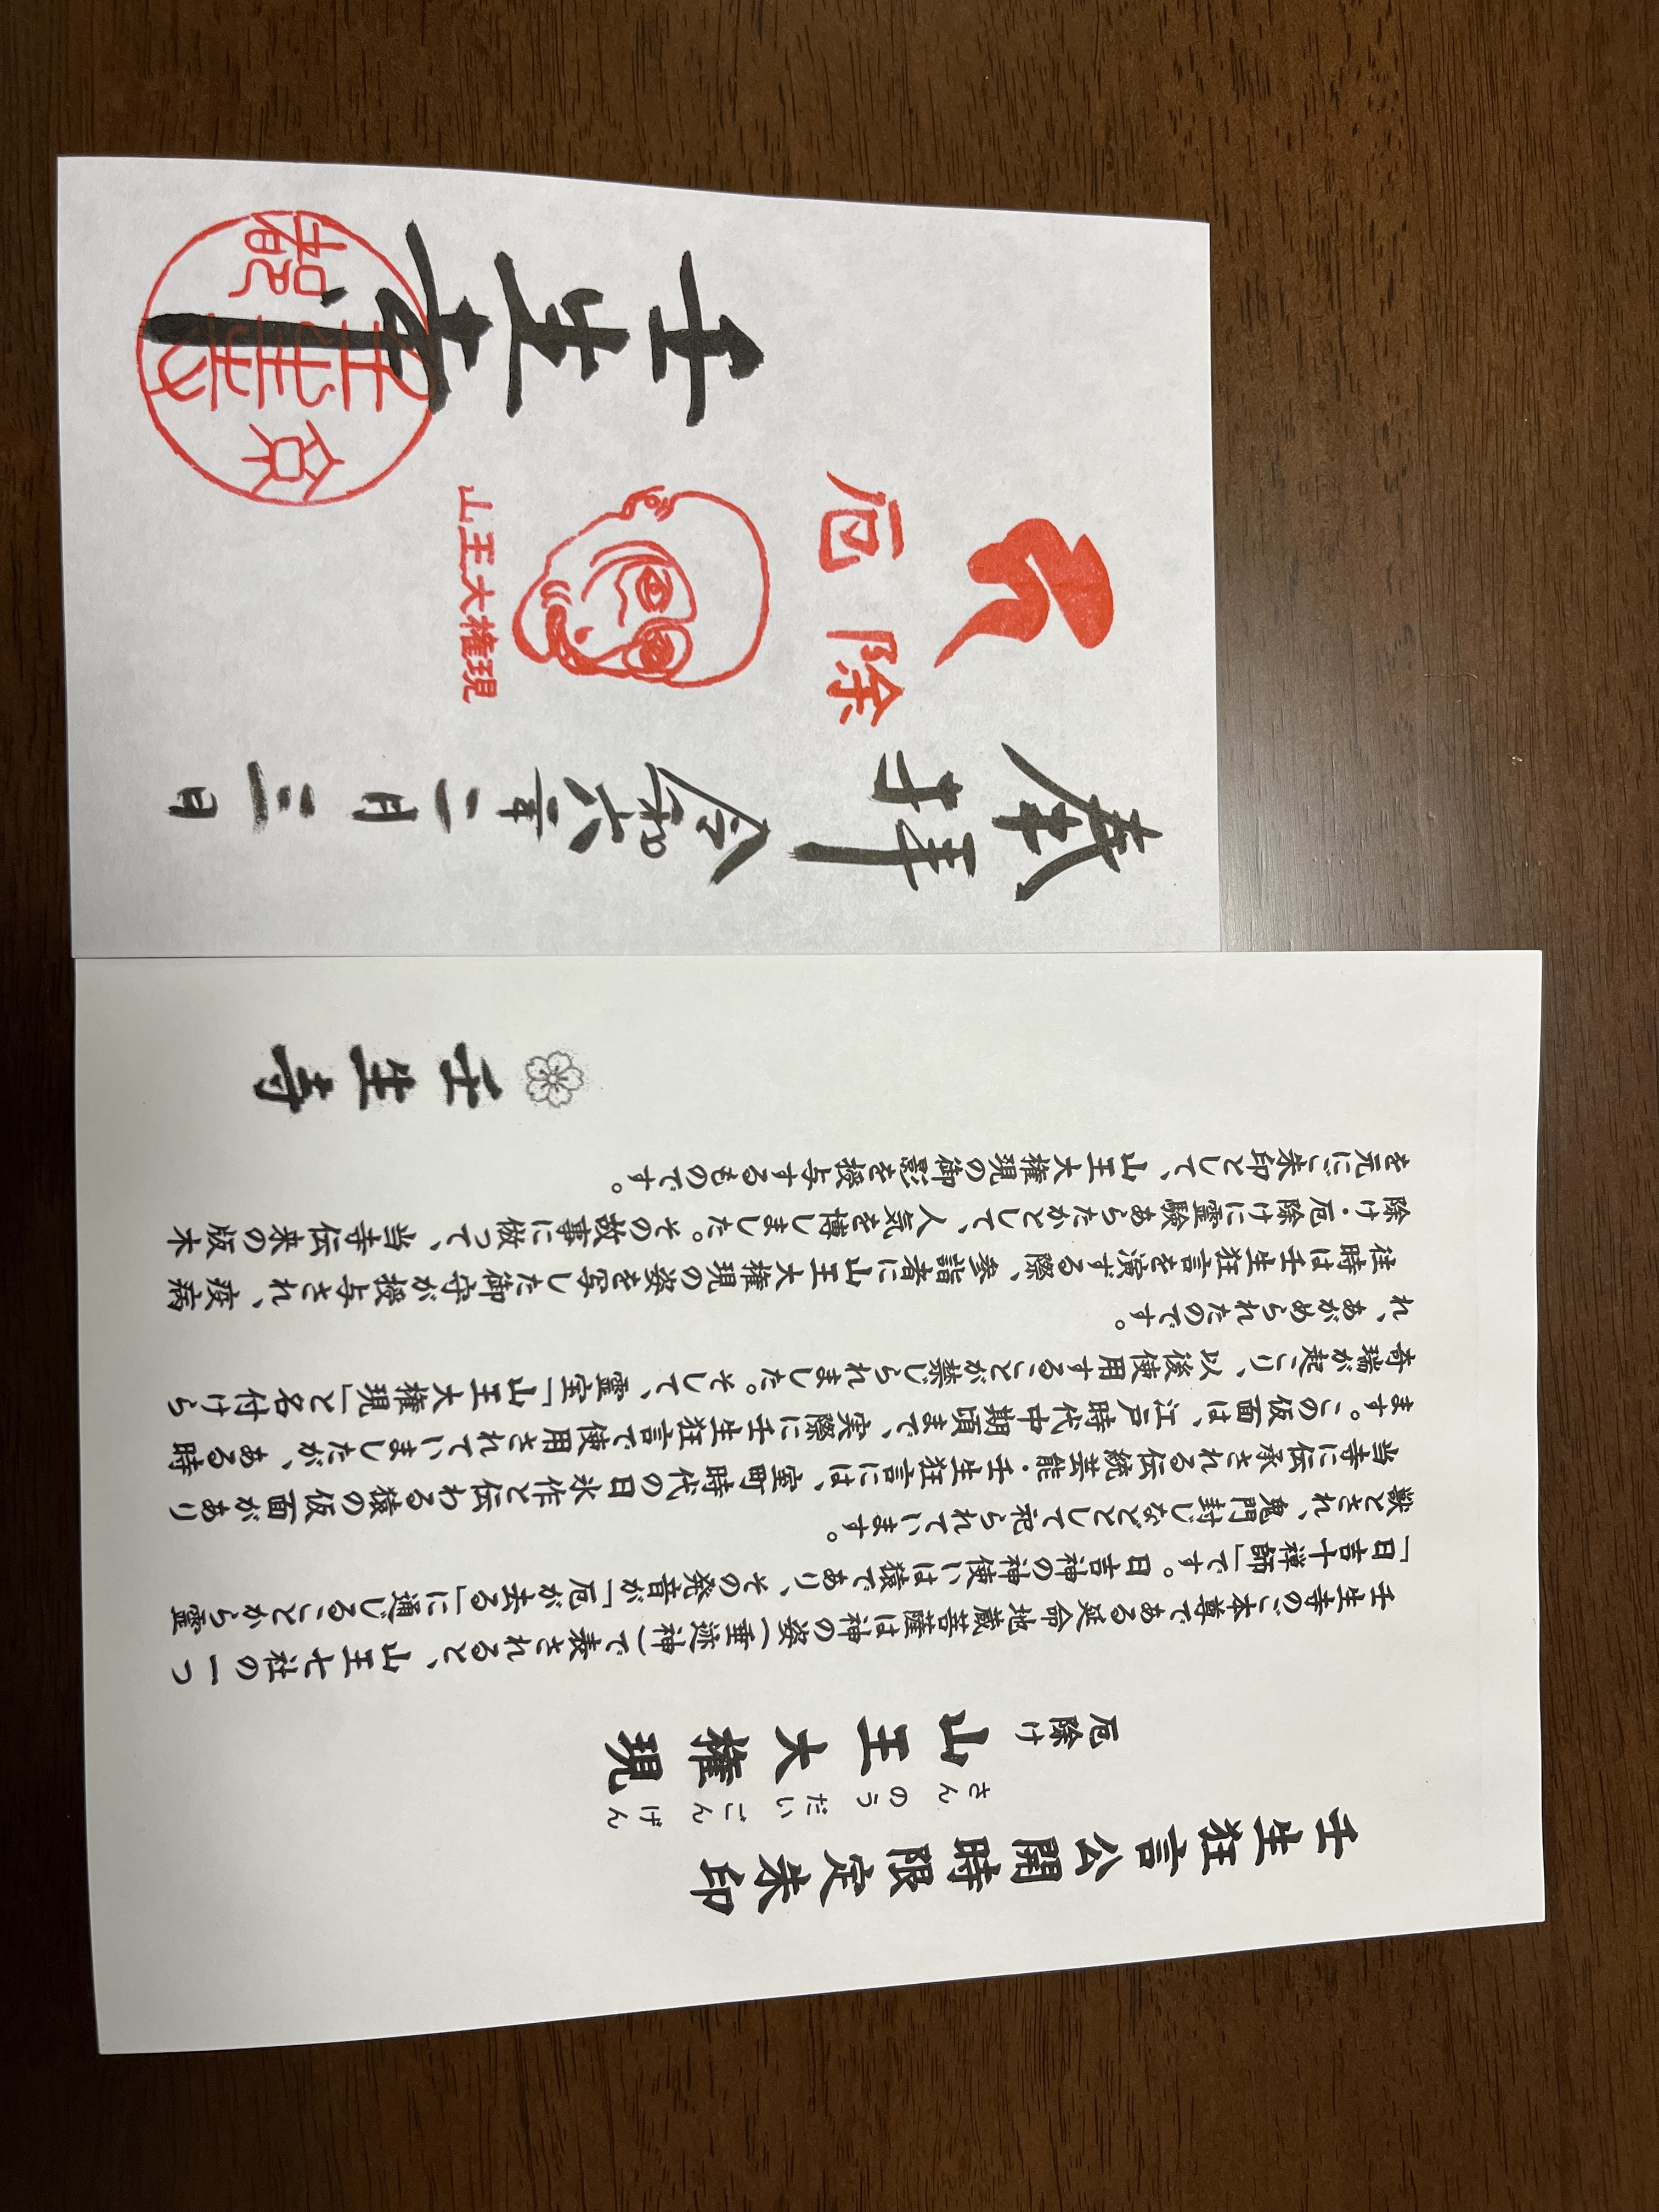 奉拝
令和六年二月三日
厄除
山王大権現
壬生寺
京
壬生寺
壬生狂言公開時限定朱印
さんのうだいごんげん
厄除け 山王大権現
壬生寺のご本尊である延命地蔵菩薩は神の姿(垂迹神)で表されると、山王七社の一つ
「日吉十禅師」です。日吉神の神使いは猿であり、その発音が「厄が去る」に通じることから霊
獣とされ、鬼門封じなどとして祀られています。
当寺に伝承される伝統芸能・壬生狂言には、室町時代の日氷作と伝わる猿の仮面があり
ます。この仮面は、江戸時代中期頃まで、実際に壬生狂言で使用されていましたが、ある時
奇瑞が起こり、以後使用することが禁じられました。そして、霊宝「山王大権現」と名付けら
れ、あがめられたのです。
往時は壬生狂言を演する際、参詣者に山王大権現の姿を写した御守が授与され、疫病
除け・厄除けに霊験あらたかとして、人気を博しました。その故事に倣って、当寺伝来の版木
を元にご朱印として、山王大権現の御影を授与するものです。
壬生寺